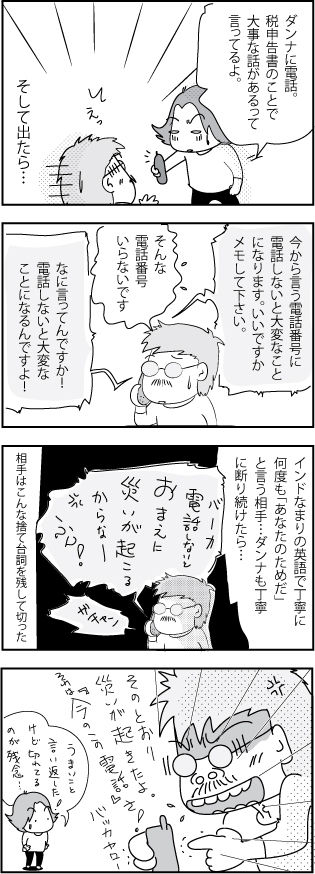 ダンナに電話。
税申告書のことで
大事な話があるって
言ってるよ。
しえっ
そして出たら…
今から言う電話番号に
電話しないと大変なこと
になります。いいですか
メモして下さい。
そんな
電話番号
いらないです
なに言ってんですか！
電話しないと大変な
ことになるんですよ！
インドなまりの英語で丁寧に
何度も「あなたのためだ」
と言う相手…ダンナも丁寧
に断り続けたら…
バーカ
電話しないと
おまえに
災いが起こる
からなー
ふんっ！
ガチャン
相手はこんな捨て台詞を残して切った
そのとおり
災いが起きたよ。
『今のこの電話』さ！
バッカヤロー
うまいこと
言い返した！
けど切れてる
のが残念…